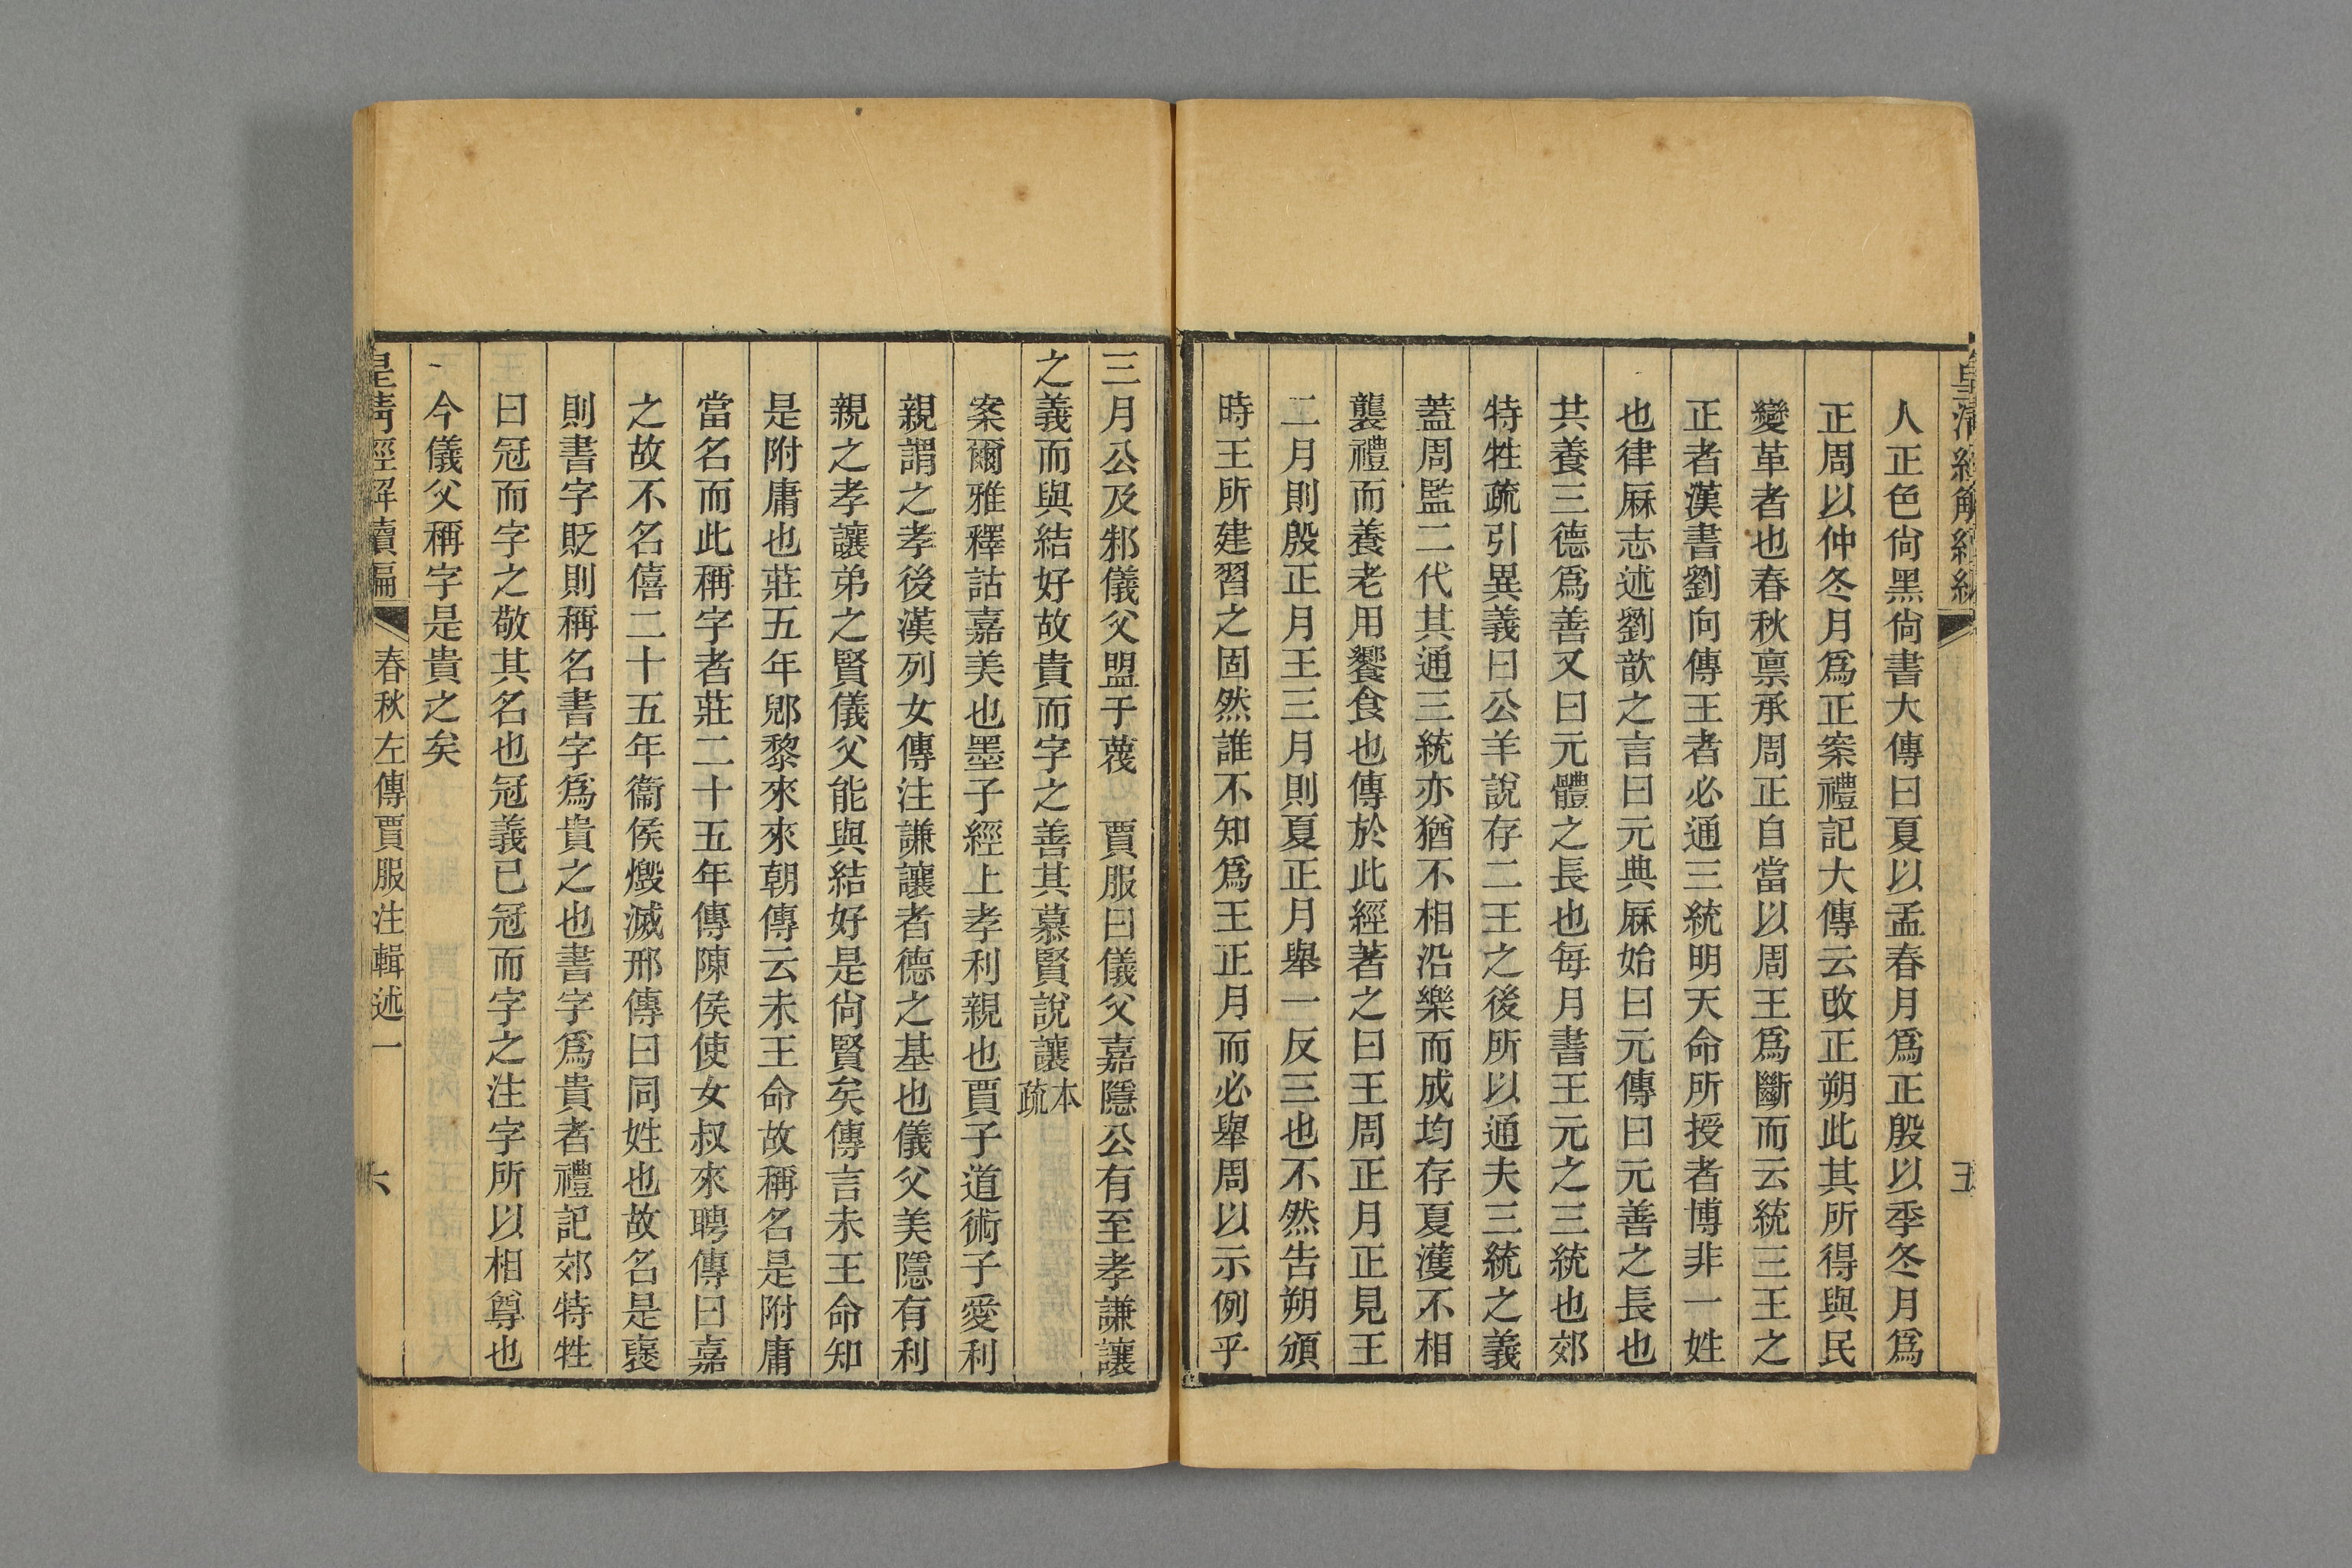 人正色尙黑尙書大傳曰夏以孟春月爲正殷以季冬月爲
正周以仲冬月爲正案禮記大傳云改正朔此其所得與民
變革者也春秋禀承周正自當以周王爲斷而云統三王之
正者漢書劉向傳王者必通三統明天命所授者博非一姓
也律厤志述劉歆之言曰元典厤始曰元傳曰元善之長也
共養三德爲善又曰元體之長也每月書王元之三統也郊
特牲疏引異義曰公羊說存二王之後所以通夫三統之義
蓋周監二代其通三統亦猶不相沿樂而成均存夏濩不相
襲禮而養老用饗食也傳於此經著之曰王周正月正見王
二月則殷正月王三月則夏正月舉一反三也不然告朔頒
時王所建習之固然誰不知爲王正月而必舉周以示例乎
三月公及邾儀父盟于蔑 賈服曰儀父嘉隱公有至孝謙讓
之義而與結好故貴而字之善其慕賢說讓本疏
案爾雅釋詁嘉美也墨子經上孝利親也賈子道術子愛利
親謂之孝後漢列女傳注謙讓者德之基也儀父美隱有利
親之孝讓弟之賢儀父能與結好是尙賢矣傳言未王命知
是附庸也莊五年郳黎來來朝傳云未王命故稱名是附庸
當名而此稱字者莊二十五年傳陳侯使女叔來聘傳曰嘉
之故不名僖二十五年衞侯燬滅邢傳曰同姓也故名是襃
則書字貶則稱名書字爲貴之也書字爲貴者禮記郊特牲
曰冠而字之敬其名也冠義已冠而字之注字所以相尊也
今儀父稱字是貴之矣
皇清經解續編 春秋左傳賈服注輯述一 六